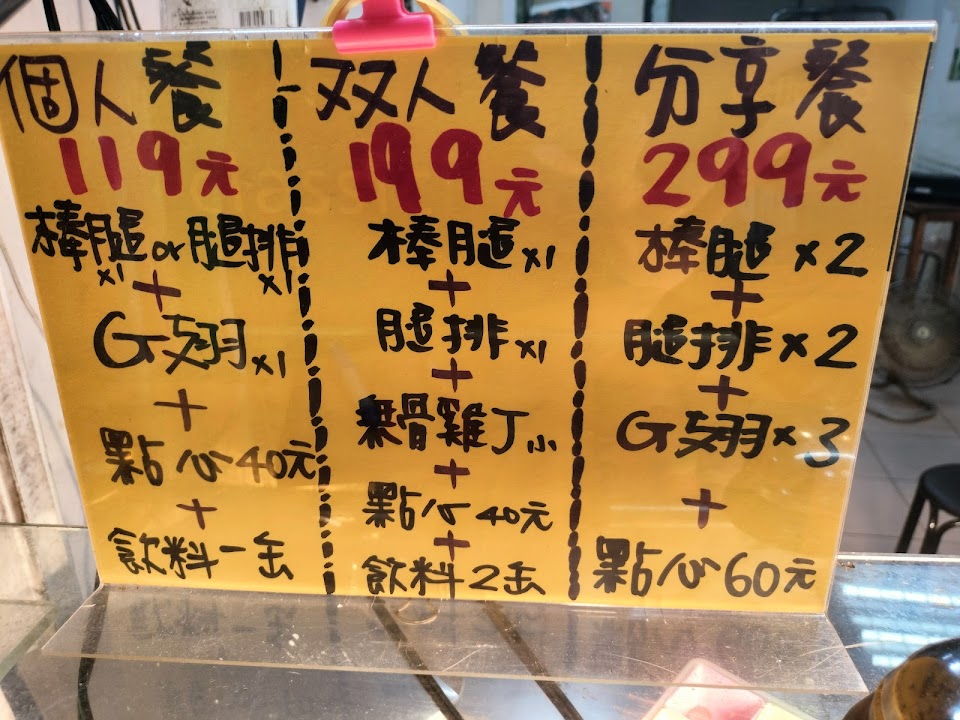 個人餐
119元
棒腿or腿排
x1 x1
+
G翅x1
+
點心40元
+
飲料一缶
双人餐
199元
棒腿x1
+
腿排x1
+
無骨雞丁小
+
點心40元
+
飲料2缶
分享餐
299元
棒腿x2
+
腿排x2
+
G翅x3
+
點心60元